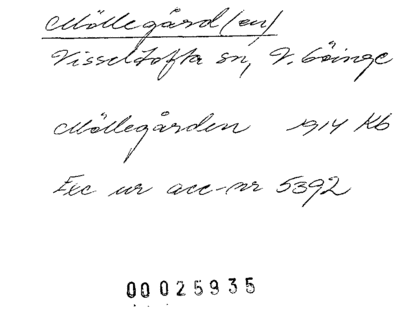 Möllegård(en)
Visseltofta sn, V. Göinge
Möllegården 1914 Kb
Exc ur acc-nr 5392
00025935